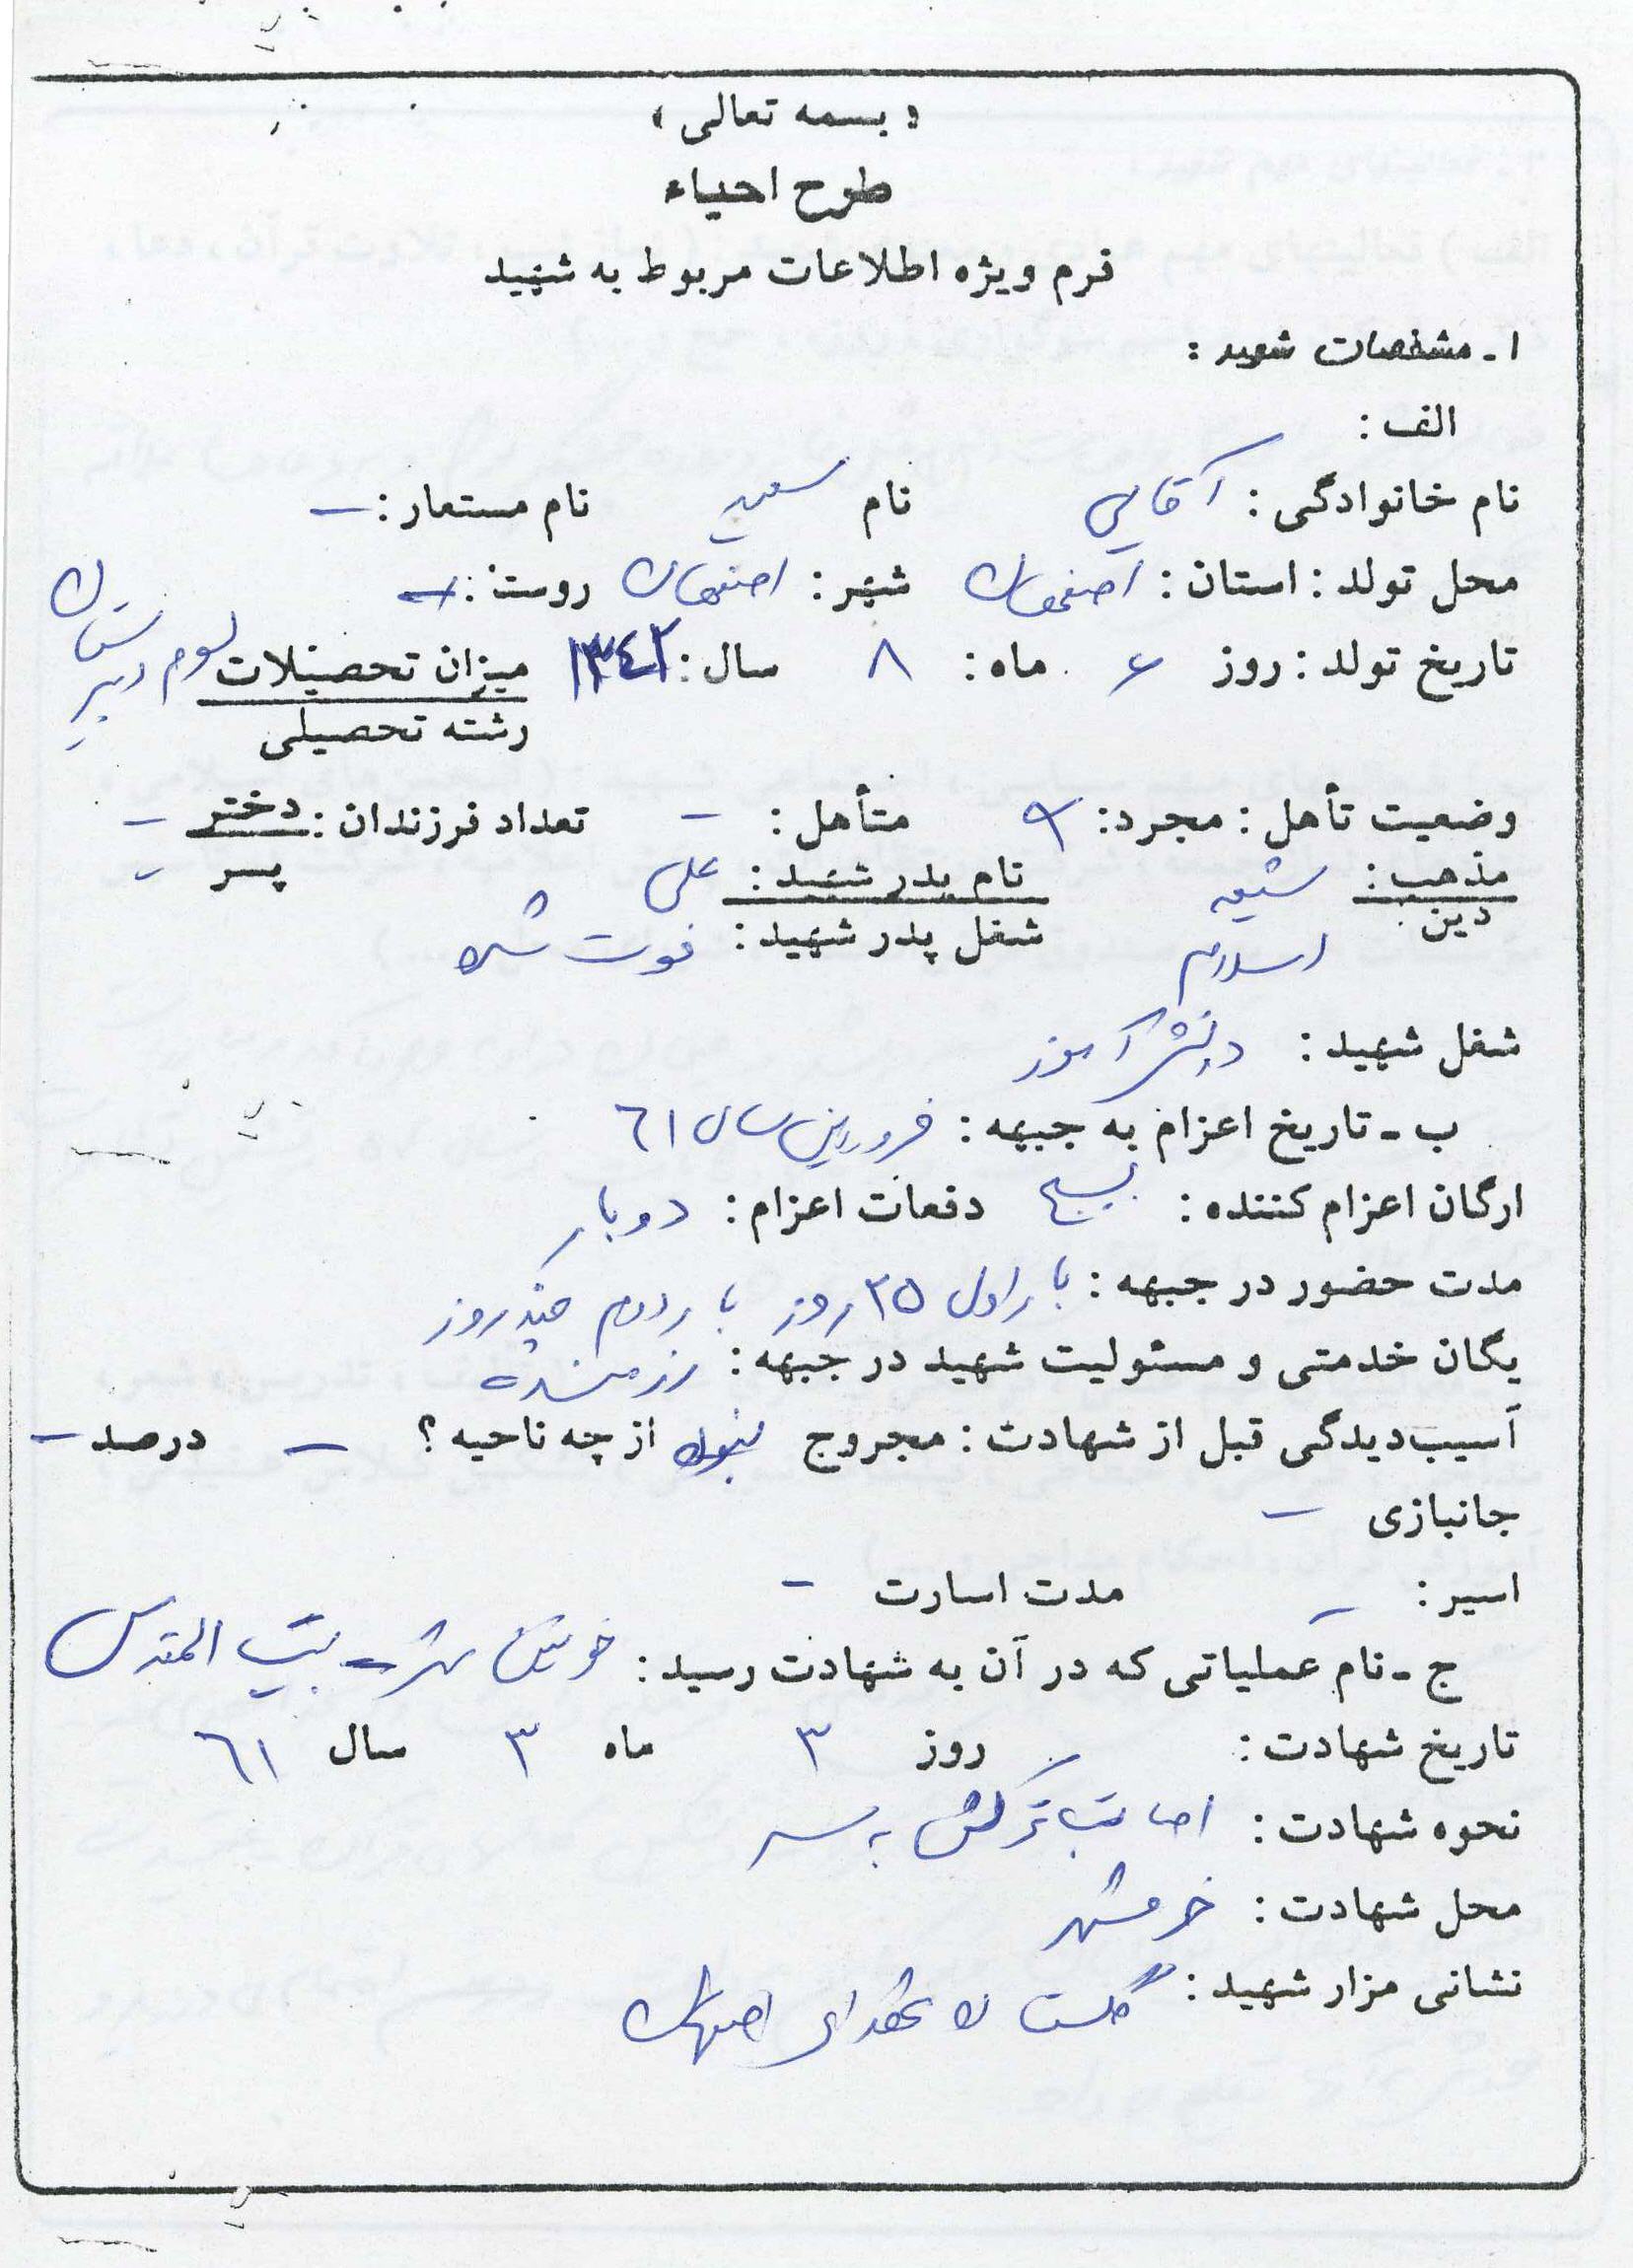 « بسمه تعالی »
طرح احیاء
فرم ویژه اطلاعات مربوط به شهید
۱ - مشخصات شهید :
الف :
نام خانوادگی : آقایی نام سعید نام مستعار : –
محل تولد : استان : اصفهان شهر : اصفهان روستا : –
تاریخ تولد : روز ۶ ماه : ۸ سال : میزان تحصیلات سوم دبیرستان
رشته تحصیلی
وضعیت تأهل : مجرد : متأهل : – تعداد فرزندان : دختر –
پسر –
مذهب : شیعه نام پدر شهید : علی
دین : اسلام شغل پدر شهید : فوت شده
شغل شهید : دانش آموز
ب - تاریخ اعزام به جبهه : فروردین سال ٦١
ارگان اعزام کننده : بسیج دفعات اعزام : دوبار
مدت حضور در جبهه : بار اول ۳۵ روز بار دوم چند روز
یگان خدمتی و مسئولیت شهید در جبهه : رزمنده
آسیب‌دیدگی قبل از شهادت : مجروح نبوده از چه ناحیه ؟ – درصد –
جانبازی –
اسیر : – مدت اسارت –
ج - نام عملیاتی که در آن به شهادت رسید : خونین شهر – بیت المقدس
تاریخ شهادت : روز ۳ ماه ۳ سال ٦١
نحوه شهادت : اصابت ترکش به سر
محل شهادت : خرمشهر
نشانی مزار شهید : گلستان شهدای اصفهان